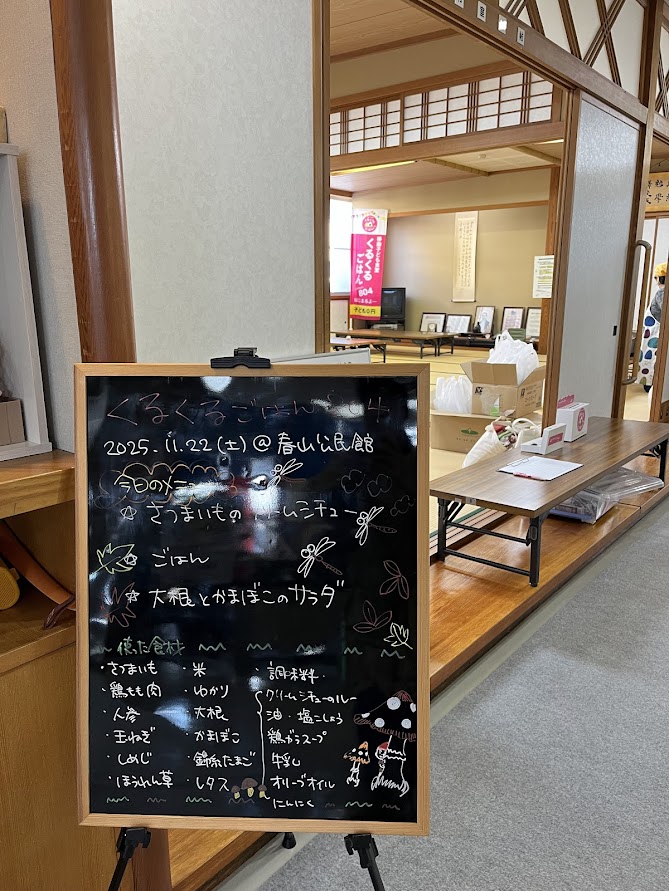 くるくる
ごはん
804
子ども0円
くるくるごはん804
2025.11.22(土)@春山公民館
今日のメニュー
☆さつまいものクリームシチュー
ごはん
☆大根とかまぼこのサラダ
使った食材
・さつまいも
・鶏もも肉
・人参
・玉ねぎ
・しめじ
・ほうれん草
・米
・ゆかり
・大根
・かまぼこ
・錦糸たまご
・レタス
・調味料・
クリームシチューのルー
油・塩こしょう
鶏ガラスープ
牛乳
オリーブオイル
にんにく